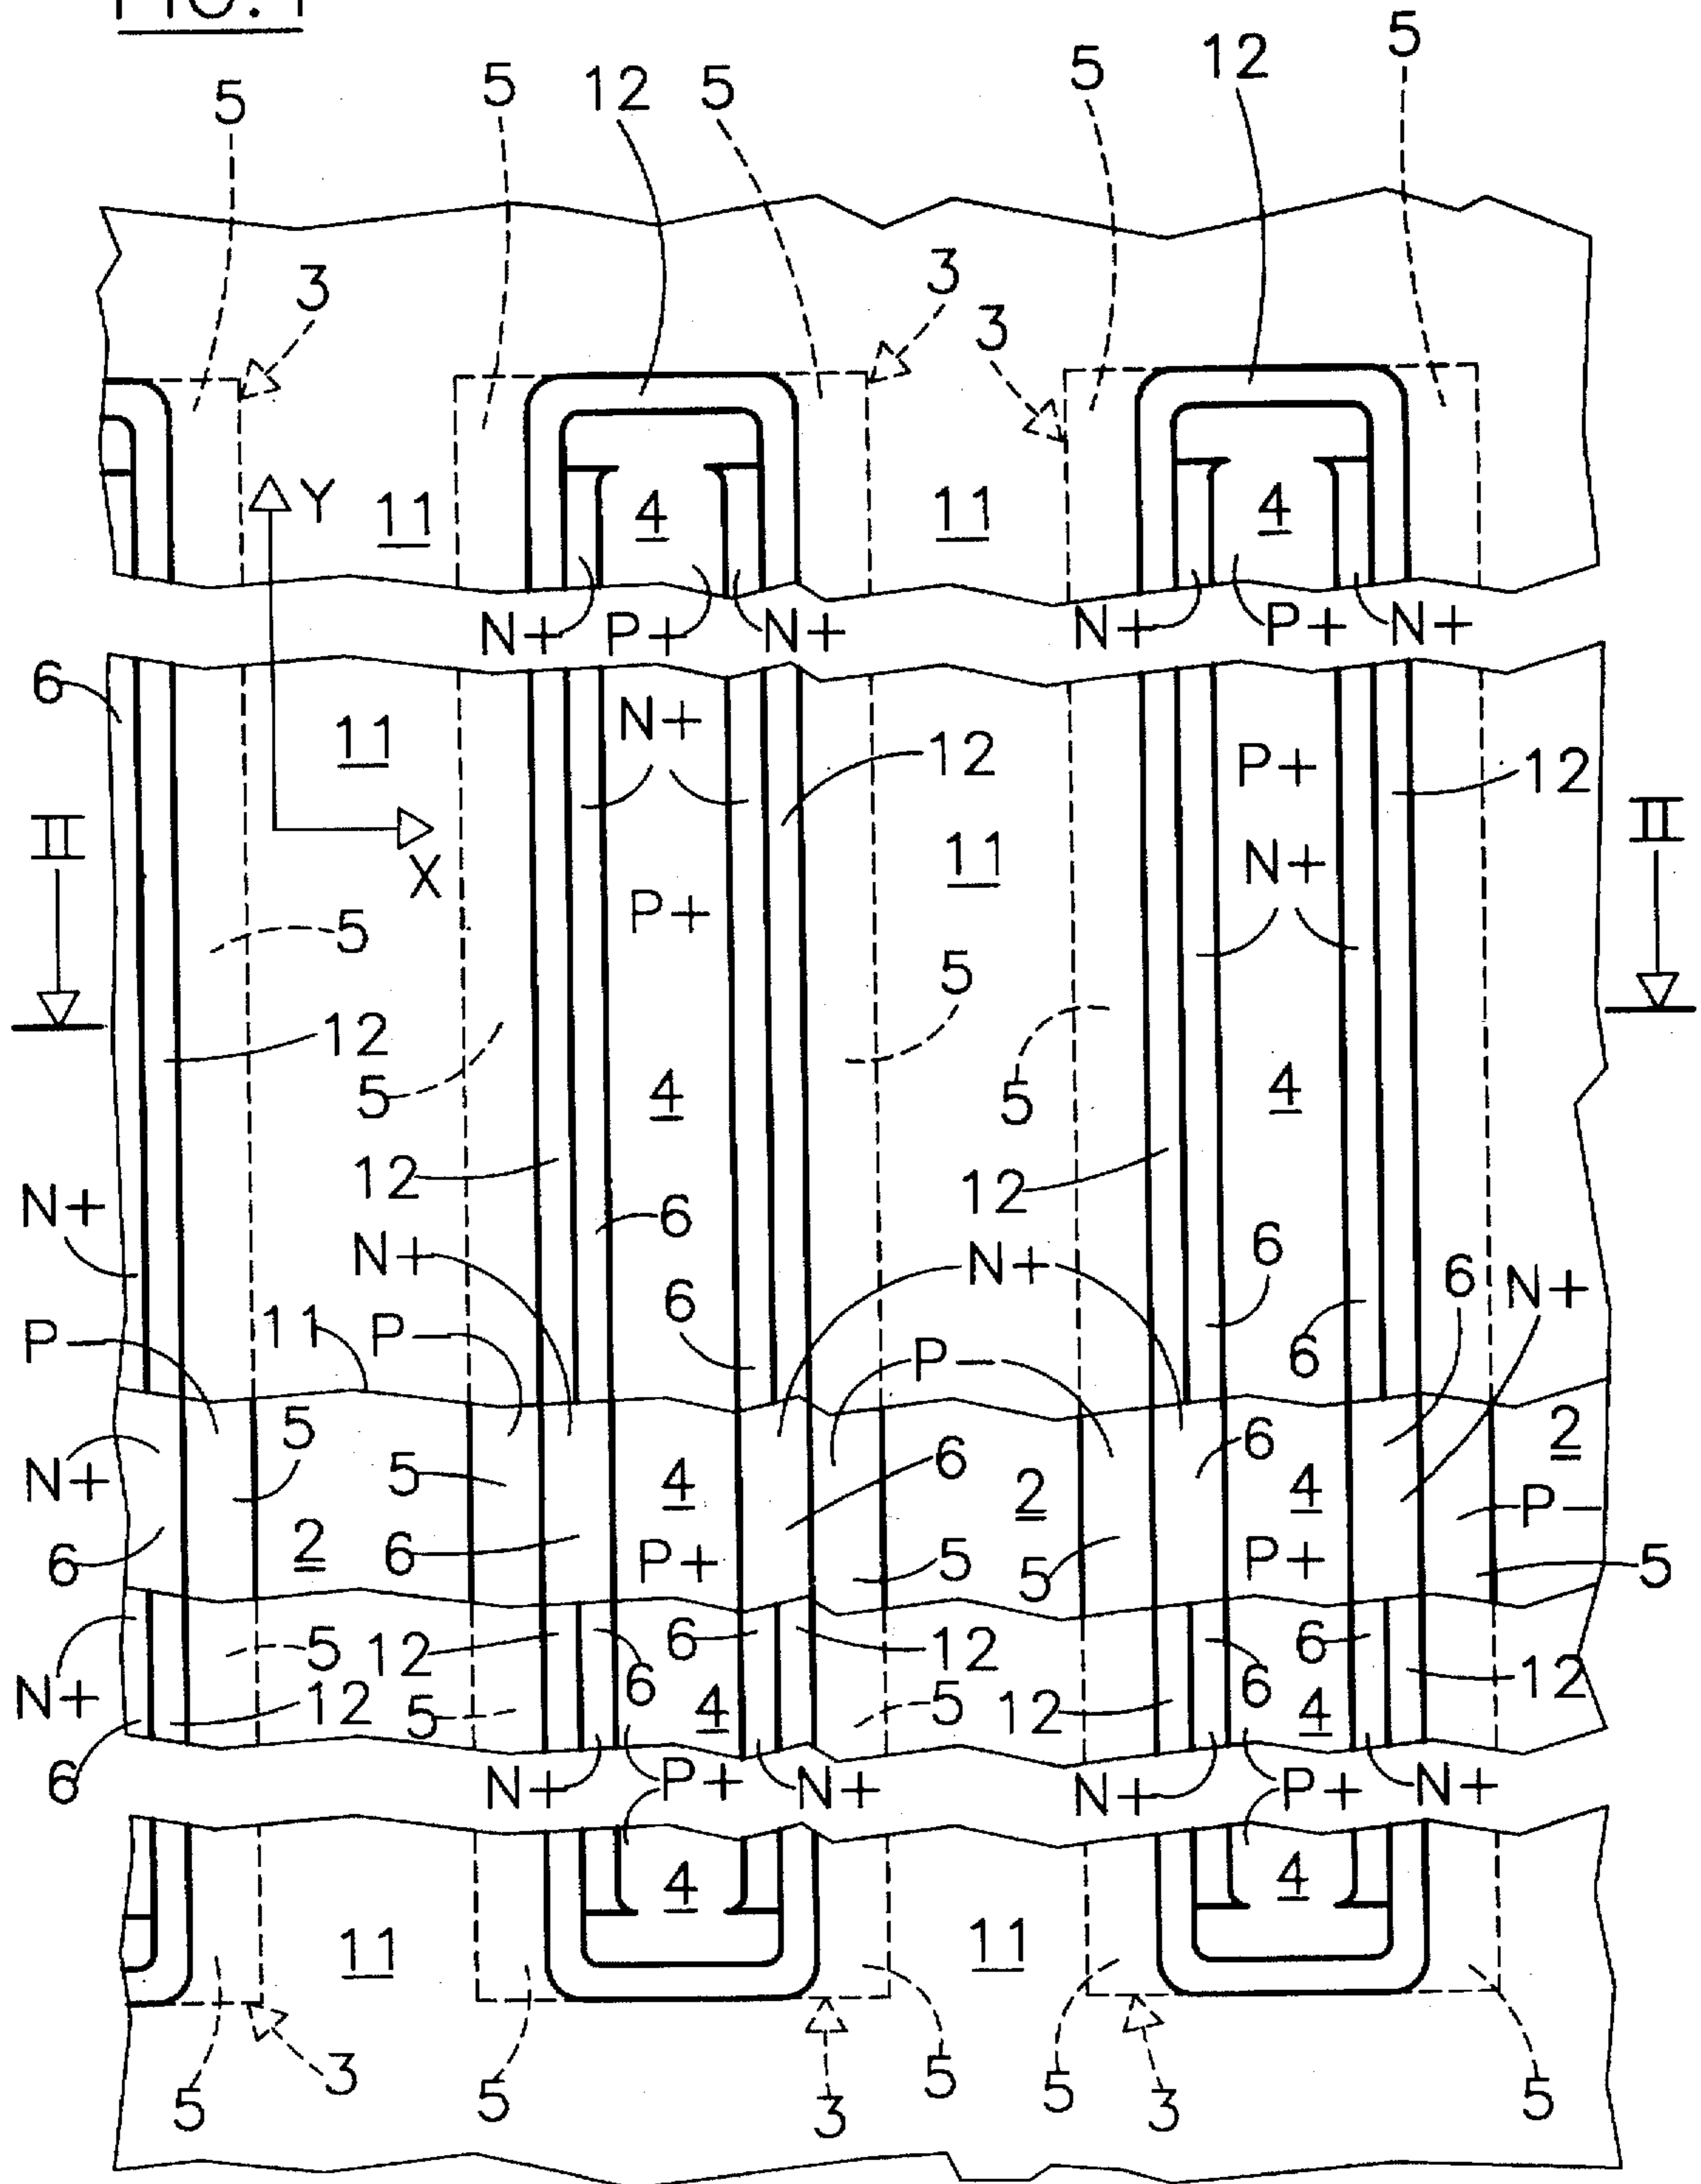 FIG. 1
5 5 12 5 5 12 5
3 3 3
Y 11 4 11 4
N+ P+ N+ N+ P+ N+
6 11 N+ 12 P+ 12
II X P+ 11 N+ II
5 5
12 5 4 5 4
12 6 12 6
N+ N+ 6 N+ 6 6 N+
P- 11 P- P- 6
5 5 4 6 2 6 4 2
N+ P-
6 2 6 P+ 5 5 P+ 5
5 12 6 6 12 6 6 12
N+ 12 5 4 5 12 4
6 N+ P+ N+ N+ P+ N+
4 4
11 11
3 5 5
5 5 3 3 5